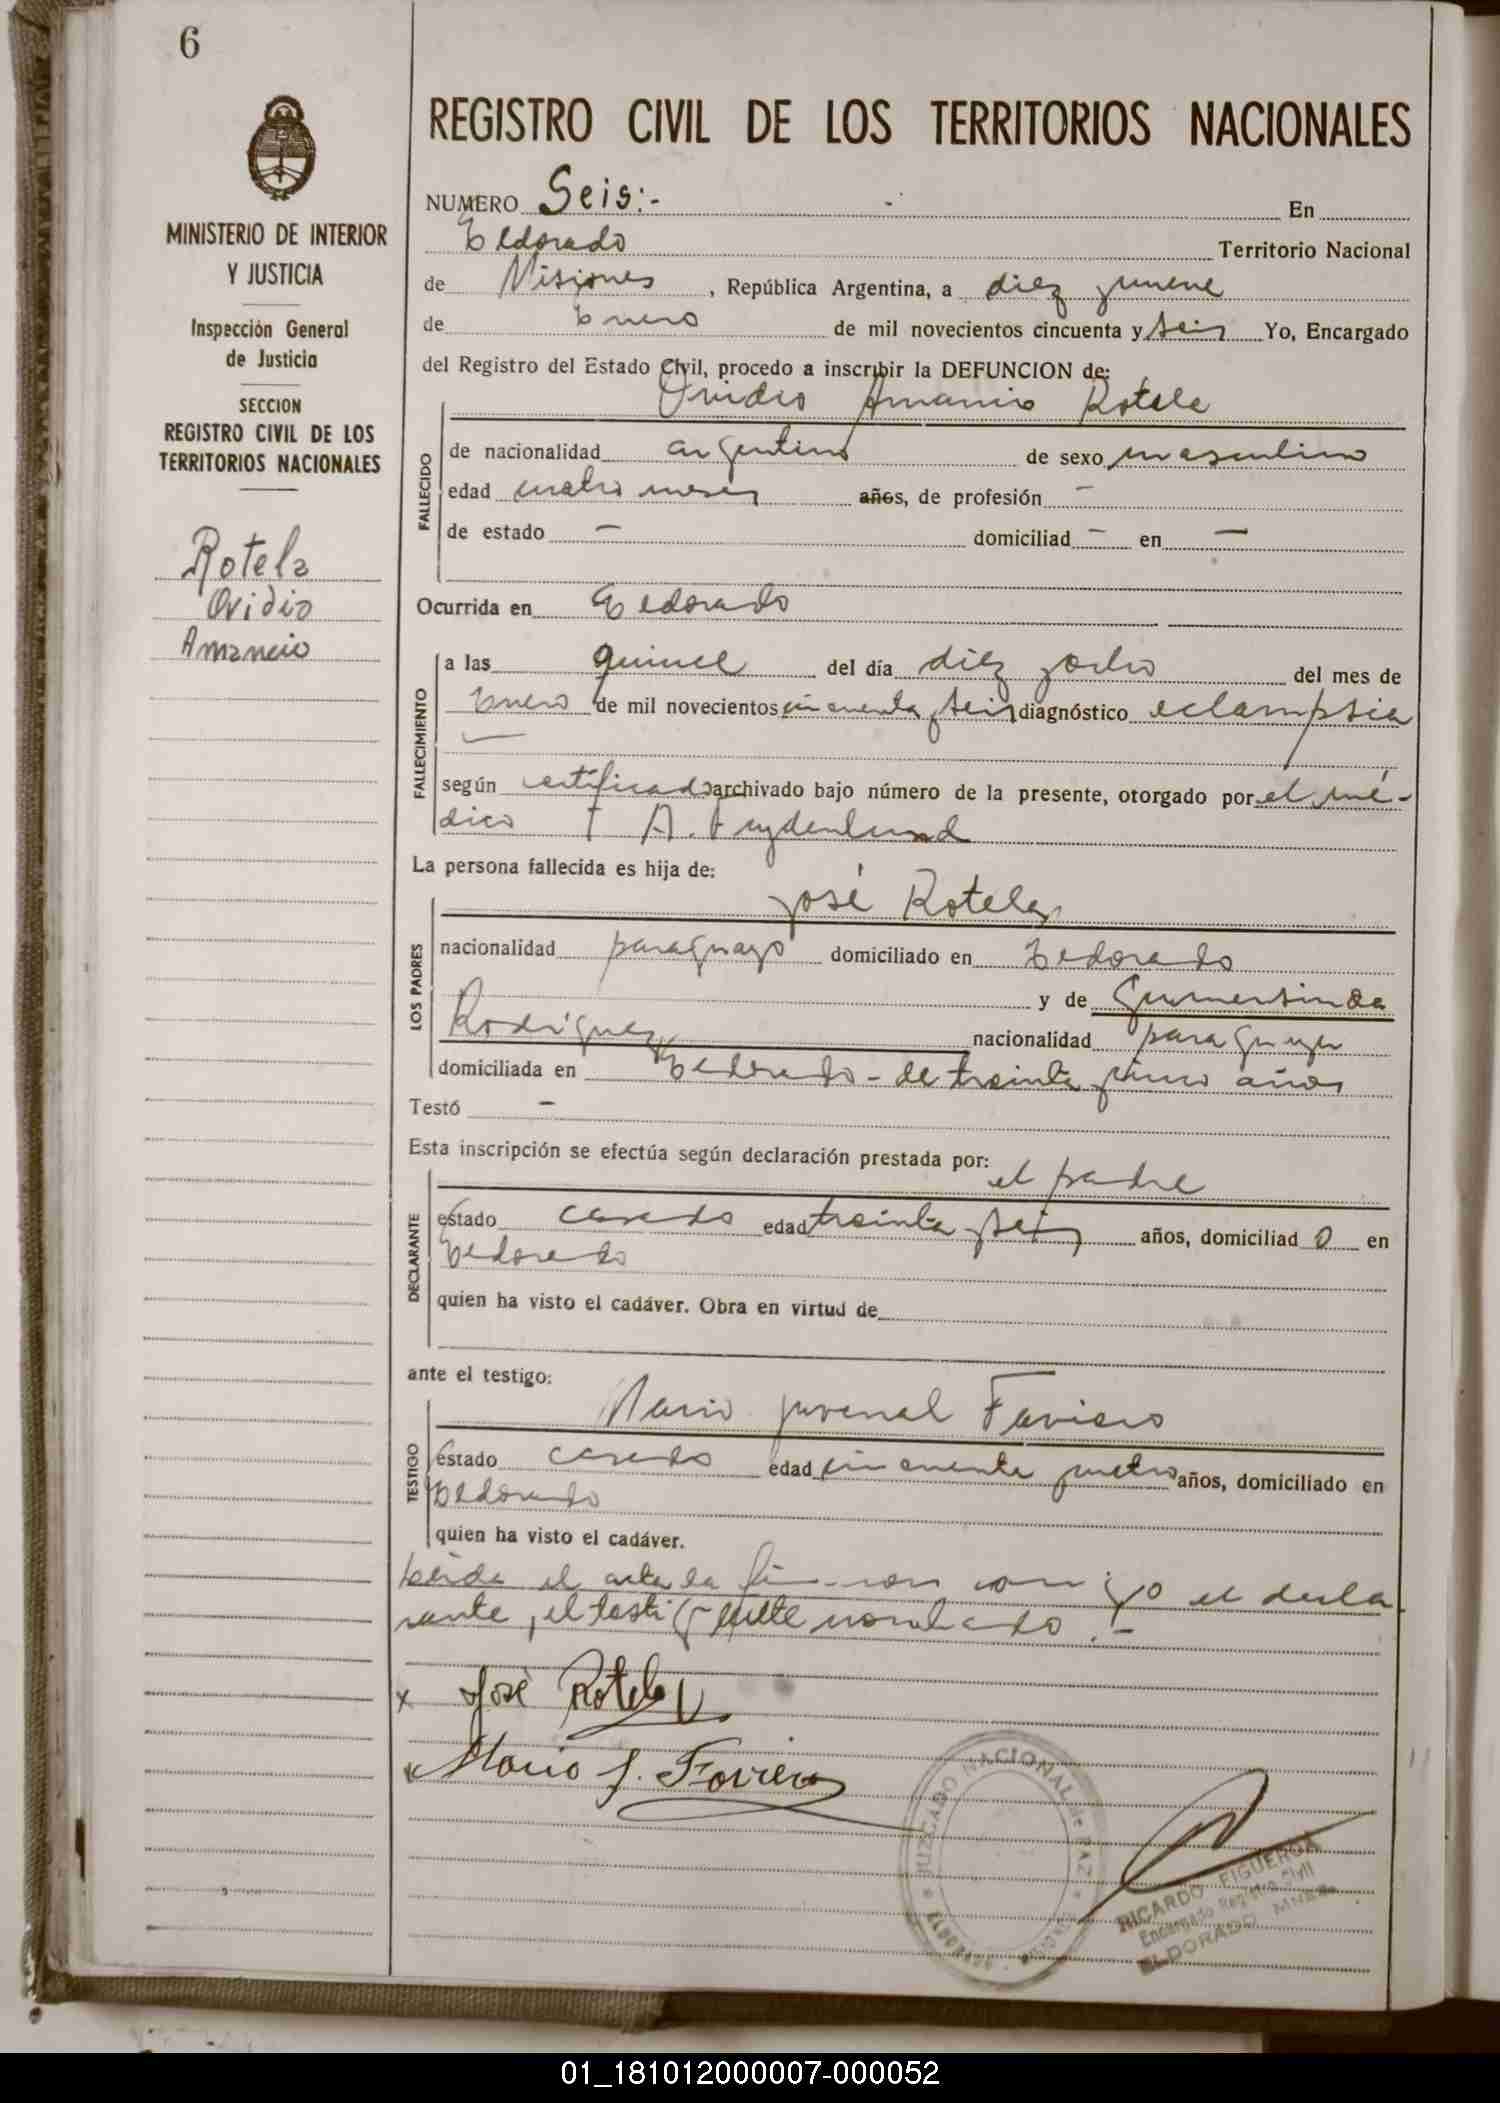 6
MINISTERIO DE INTERIOR
Y JUSTICIA
Inspección General
de Justicia
SECCION
REGISTRO CIVIL DE LOS
TERRITORIOS NACIONALES
Rotela
Ovidio
Amancio
REGISTRO CIVIL DE LOS TERRITORIOS NACIONALES
NUMERO Seis:- En
Eldorado Territorio Nacional
de Misiones, República Argentina, a diez y nueve
de Enero de mil novecientos cincuenta y seis Yo, Encargado
del Registro del Estado Civil, procedo a inscribir la DEFUNCION de:
Ovidio Amancio Rotela
FALLECIDO
de nacionalidad argentino de sexo masculino
edad cuatro meses años, de profesión -
de estado - domiciliad - en -
Ocurrida en Eldorado
FALLECIMIENTO
a las quince del día diez y ocho del mes de
Enero de mil novecientos cincuenta y seis diagnóstico eclampsia
según certificado archivado bajo número de la presente, otorgado por el mé-
dico A. Frydenlund
La persona fallecida es hija de:
José Rotela
LOS PADRES
nacionalidad paraguayo domiciliado en Eldorado
y de Gumersinda
Rodríguez nacionalidad paraguaya
domiciliada en Eldorado - de treinta y cinco años
Testó -
Esta inscripción se efectúa según declaración prestada por:
el padre
DECLARANTE
estado casado edad treinta y seis años, domiciliad o en
Eldorado
quien ha visto el cadáver. Obra en virtud de
ante el testigo:
Mario Juvenal Faviero
TESTIGO
estado casado edad cincuenta y cuatro años, domiciliado en
Eldorado
quien ha visto el cadáver.
Leída el acta la firman conmigo el decla
rante, el testigo nombrado.-
x José Rotela
x Mario J. Faviero
JUZGADO NACIONAL de PAZ
ELDORADO
RICARDO FIGUEROA
Encargado Registro Civil
ELDORADO MNES.
01_181012000007-000052